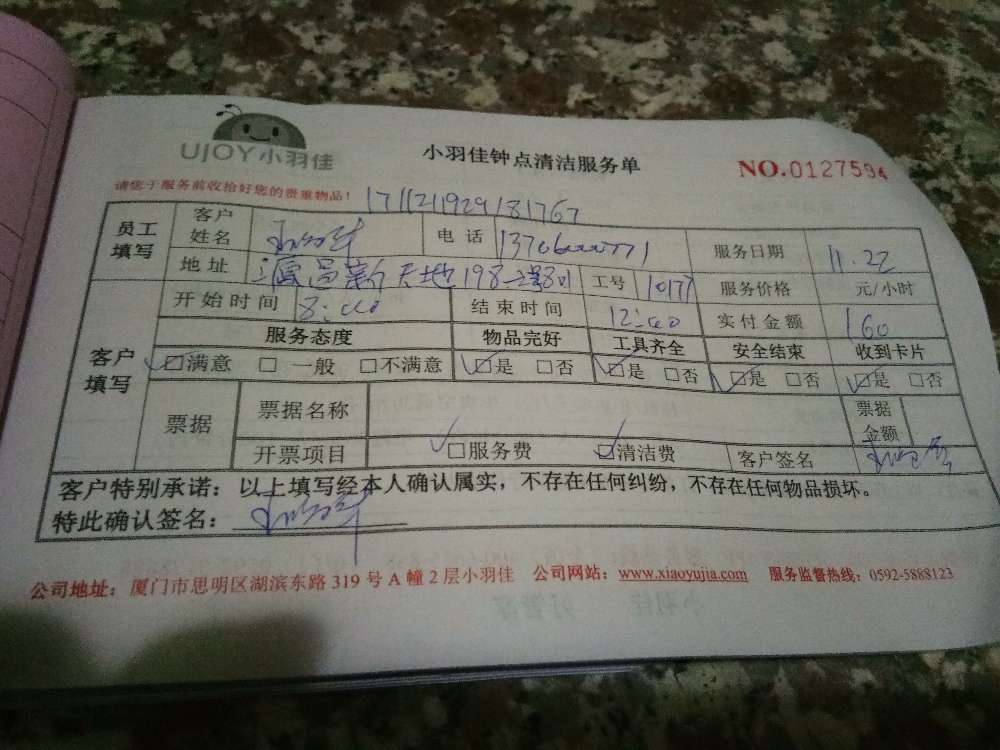 UJOY小羽佳
小羽佳钟点清洁服务单
NO.0127594
请您于服务前收拾好您的贵重物品！
1711211929181767
员工填写 客户姓名 电话 服务日期 11.22
地址 198 工号 10177 服务价格 元/小时
客户填写 开始时间 8:00 结束时间 12:00 实付金额 160
服务态度 物品完好 工具齐全 安全结束 收到卡片
☑满意 □一般 □不满意 ☑是 □否 ☑是 □否 ☑是 □否 ☑是 □否
票据 票据名称 票据金额
开票项目 ☑服务费 ☑清洁费 客户签名
客户特别承诺：以上填写经本人确认属实，不存在任何纠纷，不存在任何物品损坏。
特此确认签名：
公司地址：厦门市思明区湖滨东路 319 号 A 幢 2 层小羽佳 公司网站：www.xiaoyujia.com 服务监督热线：0592-5888123